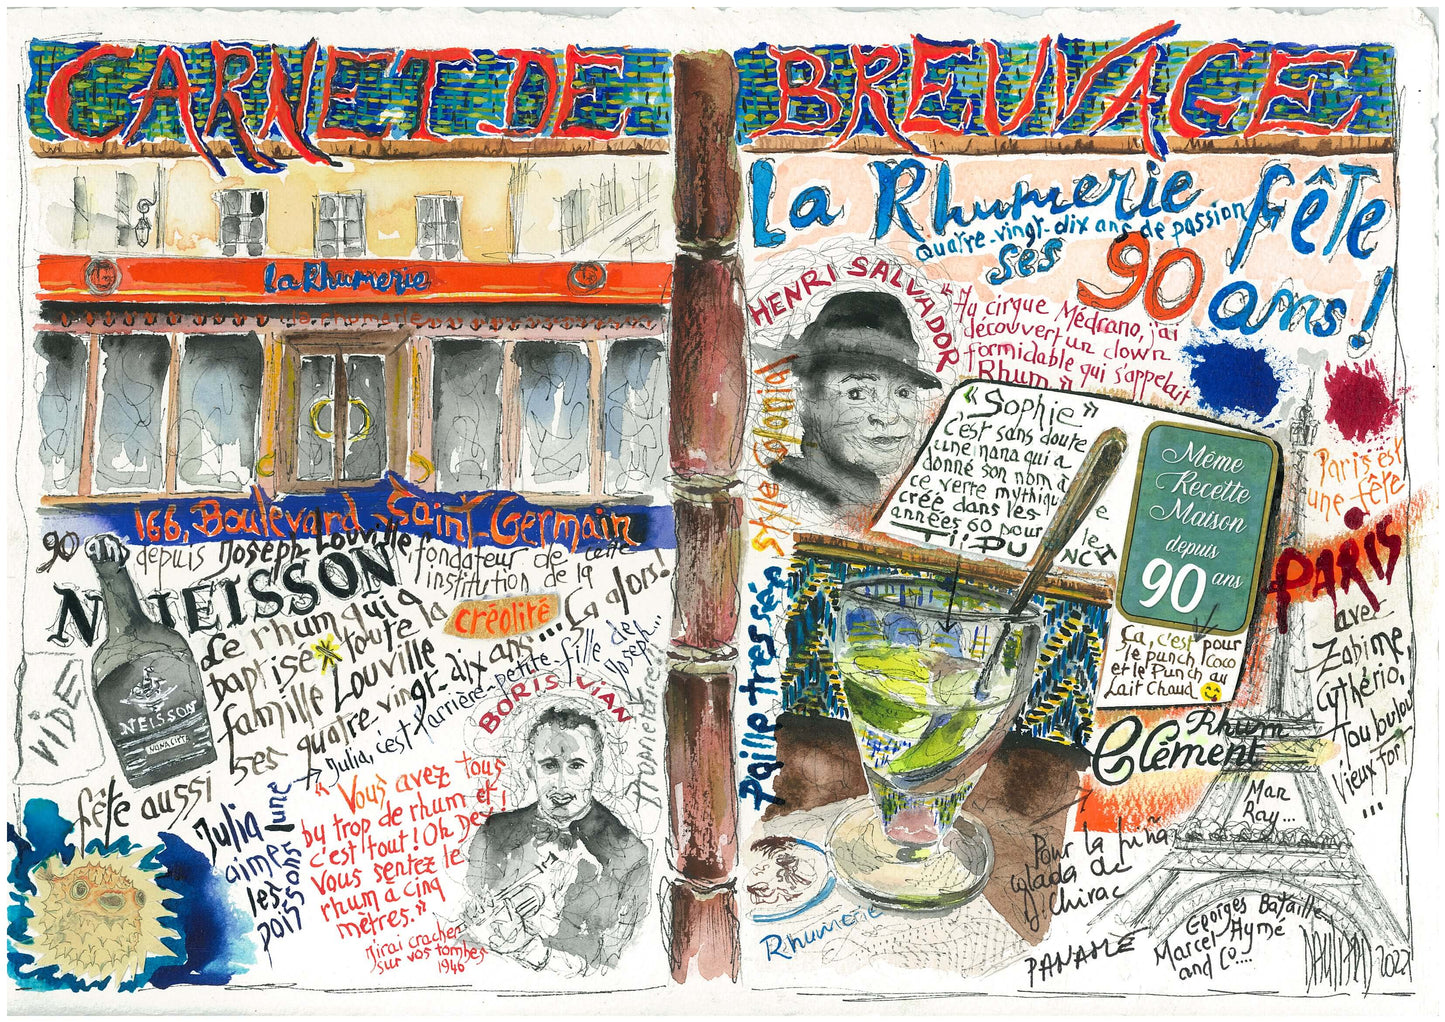 CARNET DE
La Rhumerie
la rhumerie
166, Boulevard Saint-Germain
90 ans
depuis Joseph Louville fondateur de cette
institution de la
créolité
NEISSON
Le rhum qui a
baptisé toute la
famille Louville
ses quatre-vingt-dix ans... Ça alors!
VIDE
NEISSON
fête aussi
Julia, c'est l'arrière-petite-fille de
Joseph...
Propriétaire
Julia
aime
les
poissons lune
BORIS VIAN
"Vous avez tous
by trop de rhum et
c'est tout! Oh Dex!
Vous sentez le
rhum à cinq
mètres."
J'irai cracher
sur vos tombes
1946
BREUVAGE
La Rhumerie fête
Quatre-vingt-dix ans de passion
ses 90 ans!
HENRI SALVADOR
"Au cirque Médrano, j'ai
découvert un clown
formidable qui s'appelait
Rhum"
Style Colonial
Paille tressée
"Sophie"
c'est sans doute
une nana qui a
donné son nom à
ce verre mythique
créé dans les
années 60 pour le
TI'PUNCH
Même
Recette
Maison
depuis
90 ans
Ça, c'est pour
le punch Coco
et le Punch au
Lait Chaud
Rhum
Clément
Paris est
une fête
PARIS
avec
Zabime,
Cythério,
Touloulou
Vieux Fort
...
Man
Ray...
Pour la piña
colada de
J. Chirac
Rhumerie
PANAME
Georges Bataille
Marcel Aymé
and Co....
2022